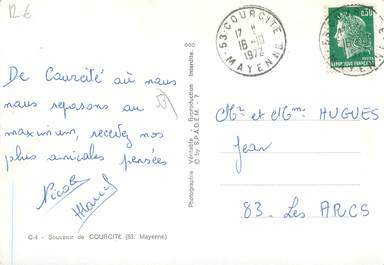 12 €
53 COURCITE
17 H
16-10
1972
MAYENNE
0,30
REPUBLIQUE FRANCAISE
De Courcité où nous
nous reposons au
maximum, recevez nos
plus amicales pensées
Nicole
Marcel
53
Mr et Mme HUGUES
Jean
83. Les ARCS
Photographie Véritable - Reproduction Interdite.
© by S.P.A.D.E.M. - 7
C-4 - Souvenir de COURCITE (53. Mayenne)